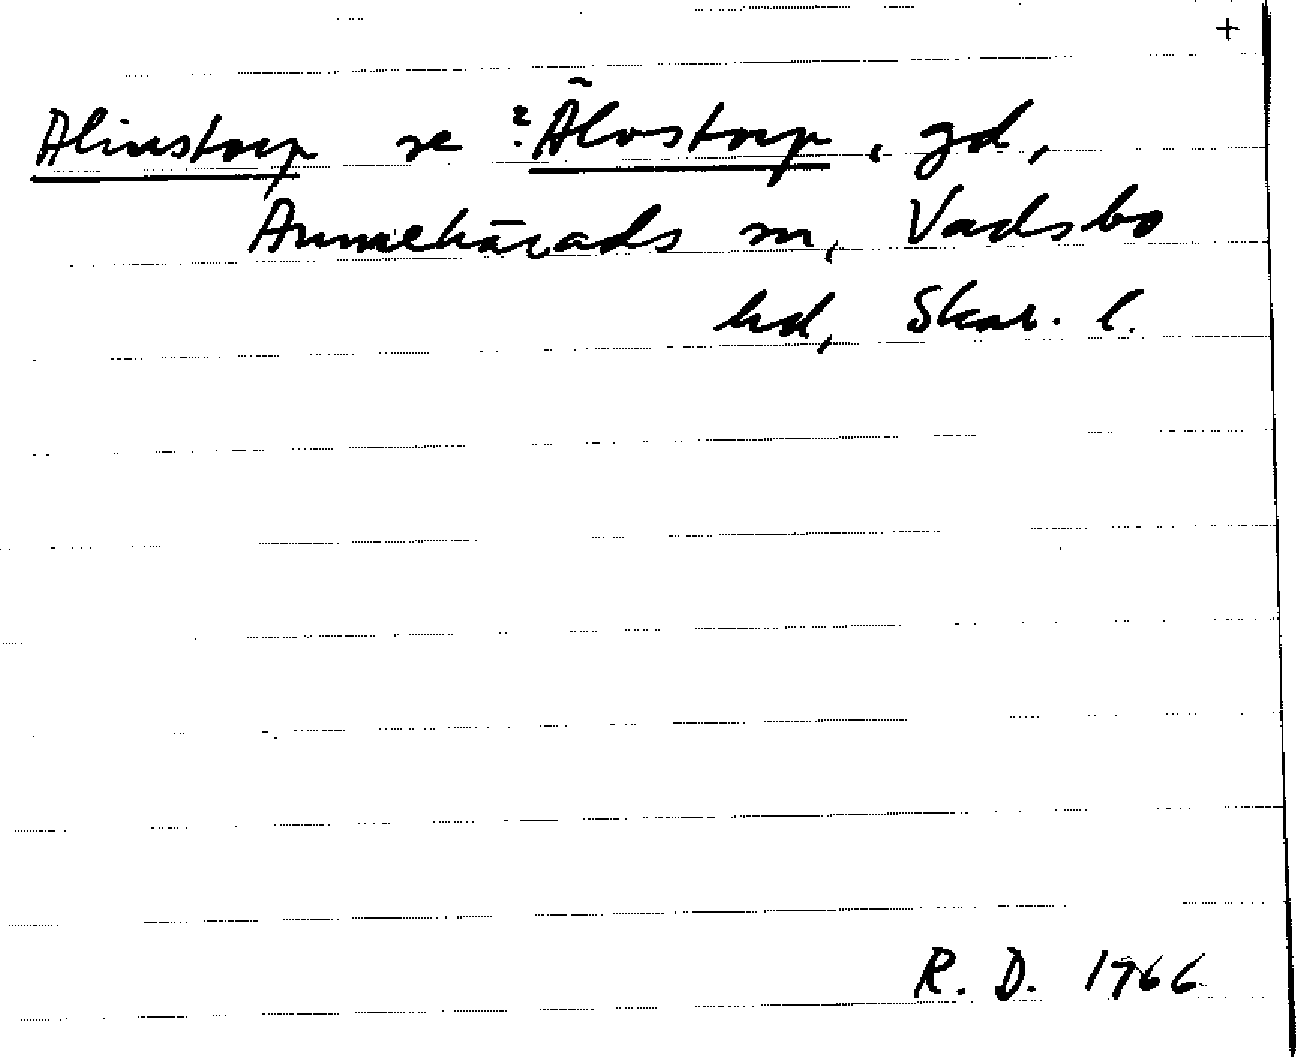 +
Alinstorp se ?Älvstorp, gd,
Amnehärads sn, Vadsbo
hd, Skar. l.
R. D. 1966